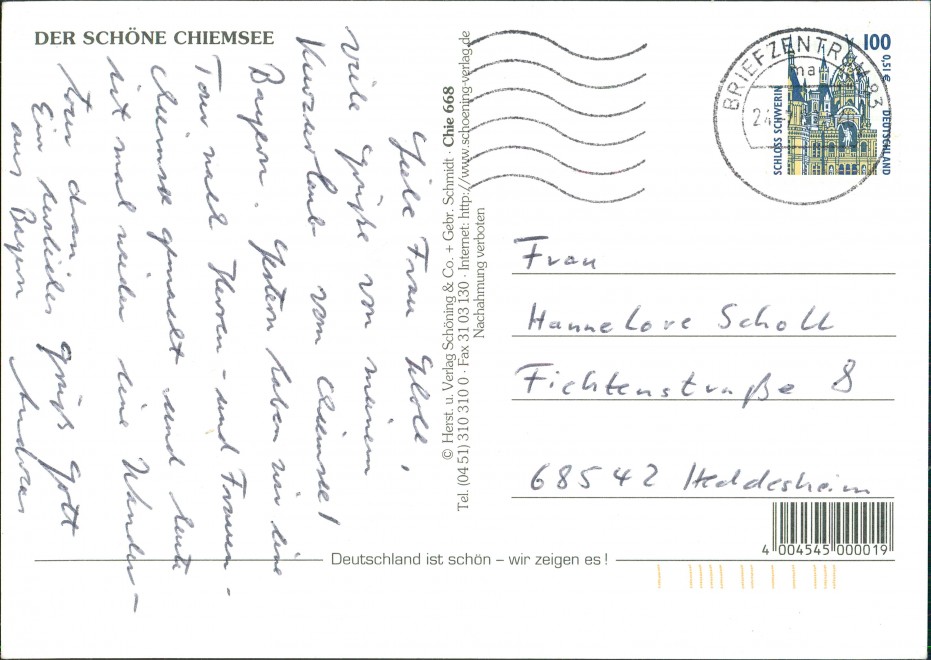 DER SCHÖNE CHIEMSEE
Liebe Frau Scholl,
viele Grüße von meinem
Kurzurlaub vom Chiemsee!
Bayern. Gestern haben wir eine
Tour nach Herren- und Frauen-
chiemsee gemacht und heute
ist mal wieder eine Wander-
tour dran
Ein herzliches Grüß Gott
aus Bayern Andreas
© Herst. u. Verlag Schöning & Co. + Gebr. Schmidt · Chie 668
Tel. (04 51) 310 310 0 · Fax 31 03 130 · Internet: http://www.schoening-verlag.de
Nachahmung verboten
BRIEFZENTRUM 83
ma
24
100
0,51 €
SCHLOSS SCHWERIN
DEUTSCHLAND
Frau
Hannelore Scholl
Fichtenstraße 8
68542 Heddesheim
4 004545 000019
Deutschland ist schön – wir zeigen es!